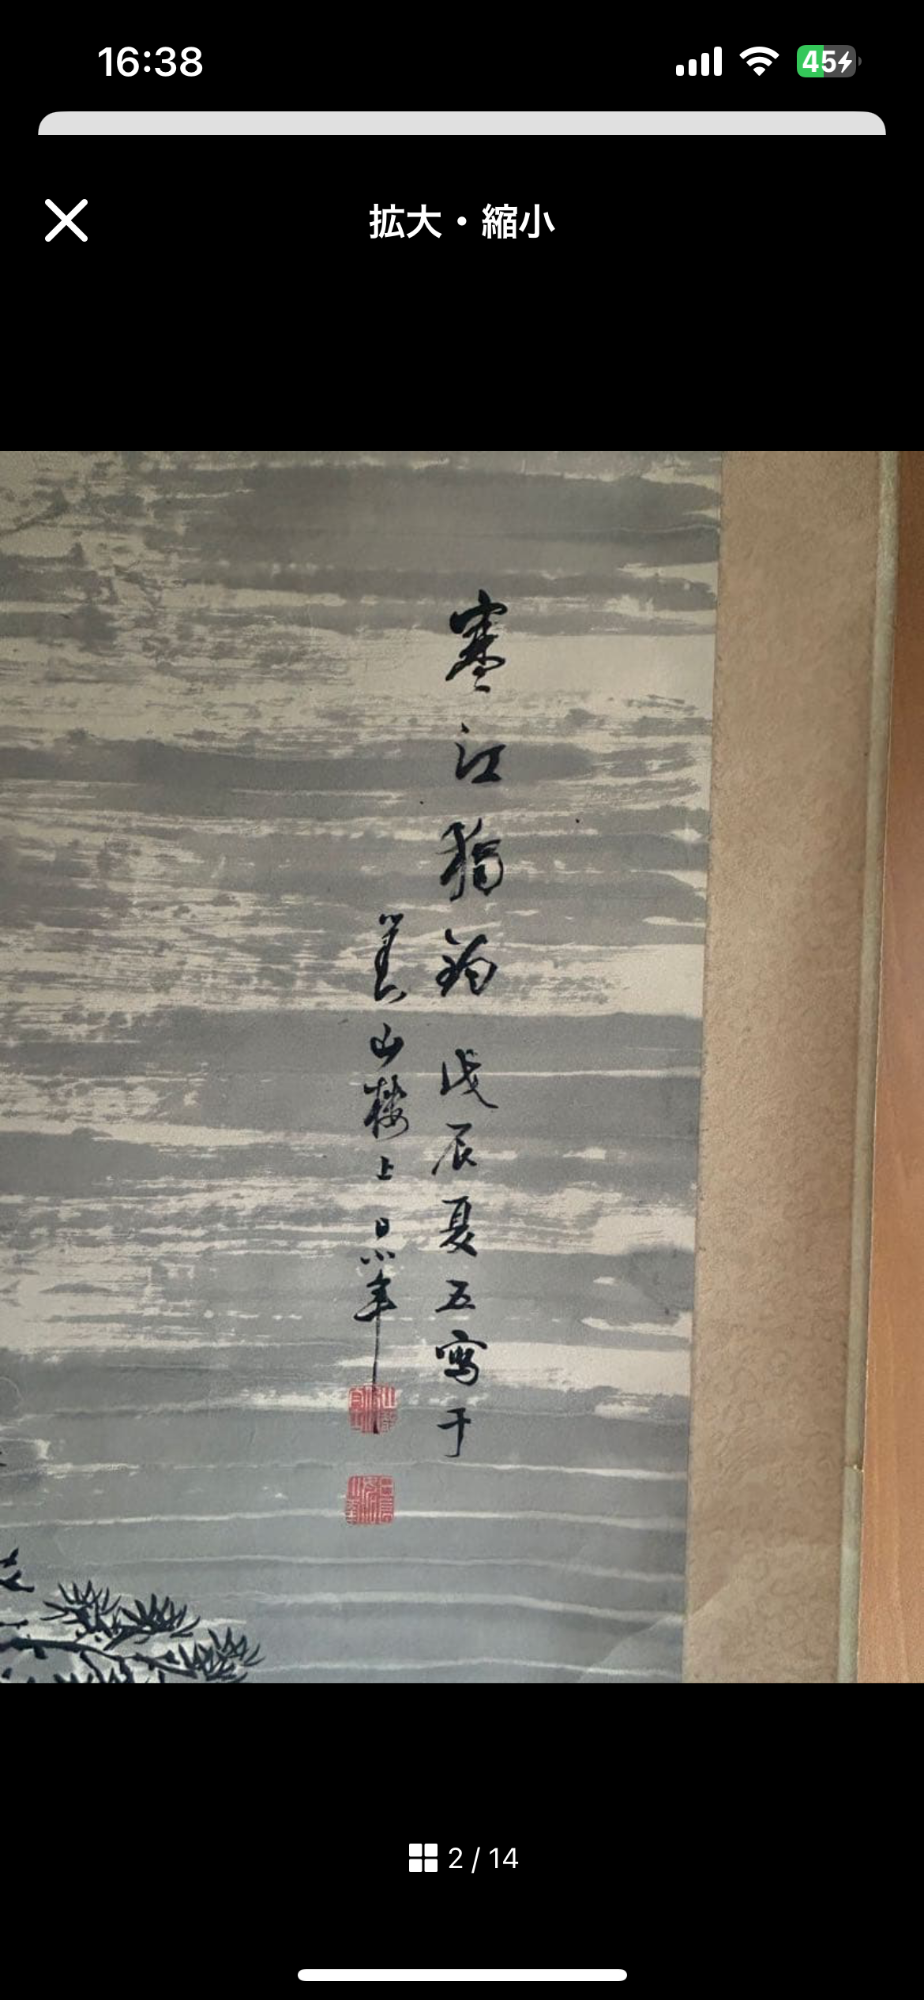 16:38
45
拡大・縮小
寒江獨釣 戊辰夏五寫于
山樓上
2 / 14